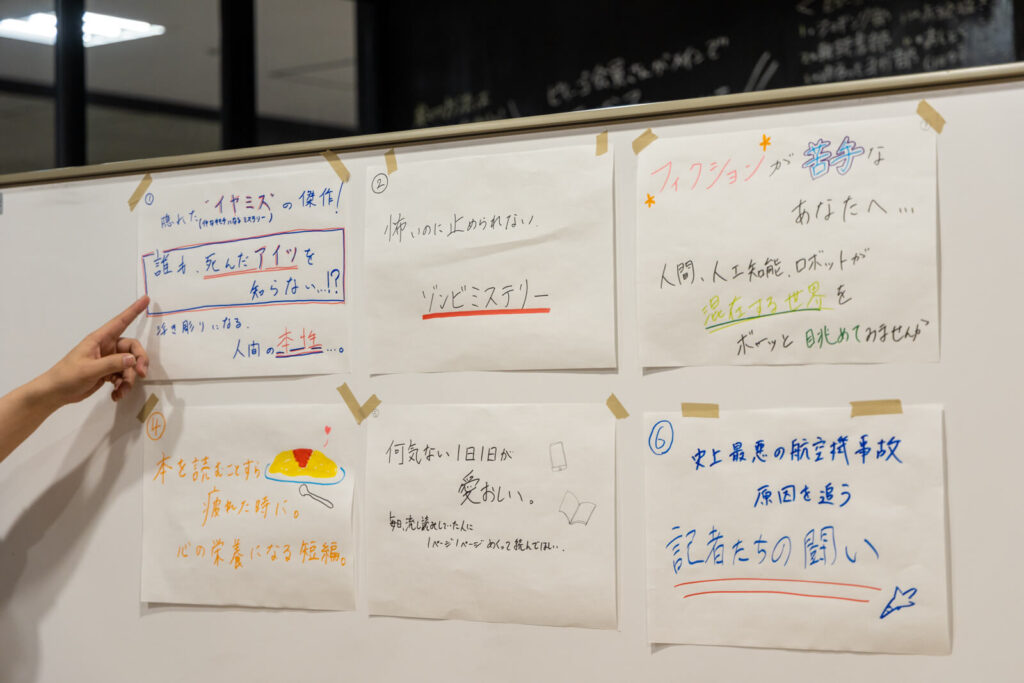 ①
隠れた"イヤミス"の傑作!
誰も、死んだアイツを
知らない…!?
浮き彫りになる、
人間の本性…。
②
怖いのに止められない
ゾンビミステリー
フィクションが苦手な
あなたへ…
人間、人工知能、ロボットが
混在する世界を
ボーッと眺めてみませんか
④
本を読むことすら
疲れた時に。
心の栄養になる短編。
⑤
何気ない1日1日が
愛おしい。
毎日、流し読みしていた人に
1ページ1ページめくって読んでほしい。
⑥
史上最悪の航空機事故
原因を追う
記者たちの闘い